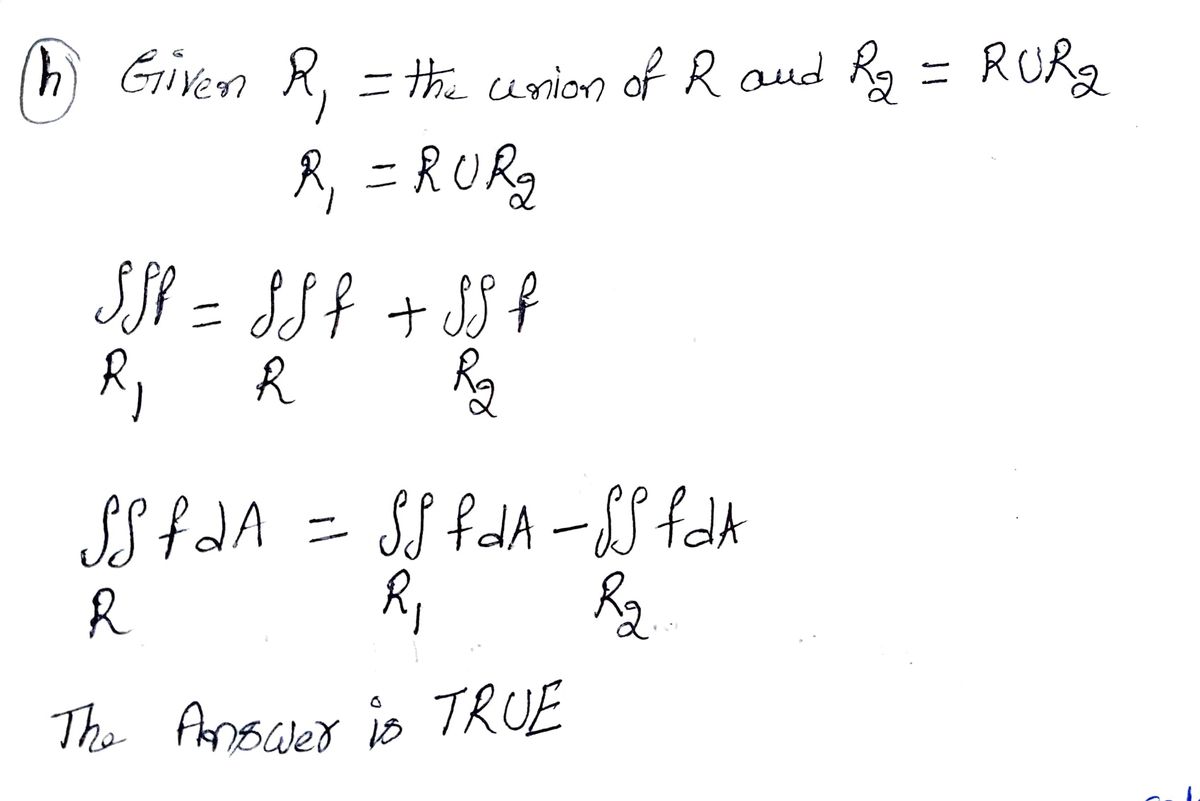 (h) Given R₁ = the union of R and R₂ = R∪R₂
R₁ = R∪R₂
∬f = ∬f + ∬f
R₁ R R₂
∬fdA = ∬fdA – ∬fdA
R R₁ R₂
The Answer is TRUE